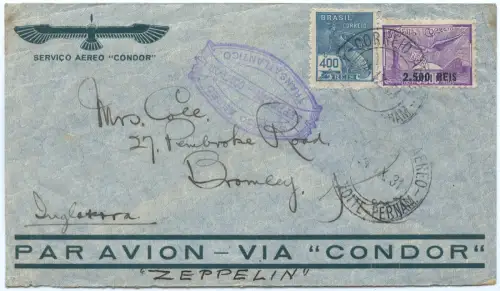 SERVIÇO AEREO "CONDOR"
BRASIL
CORREIO
400
REIS
CORREIO
2.500 REIS
TRANSATLANTICO
Mrs. Cole.
27, Pembroke Road,
Bromley.
Inglaterra.
AEREO
X. 31
NOITE-PERNAM
PAR AVION - VIA "CONDOR"
"ZEPPELIN"